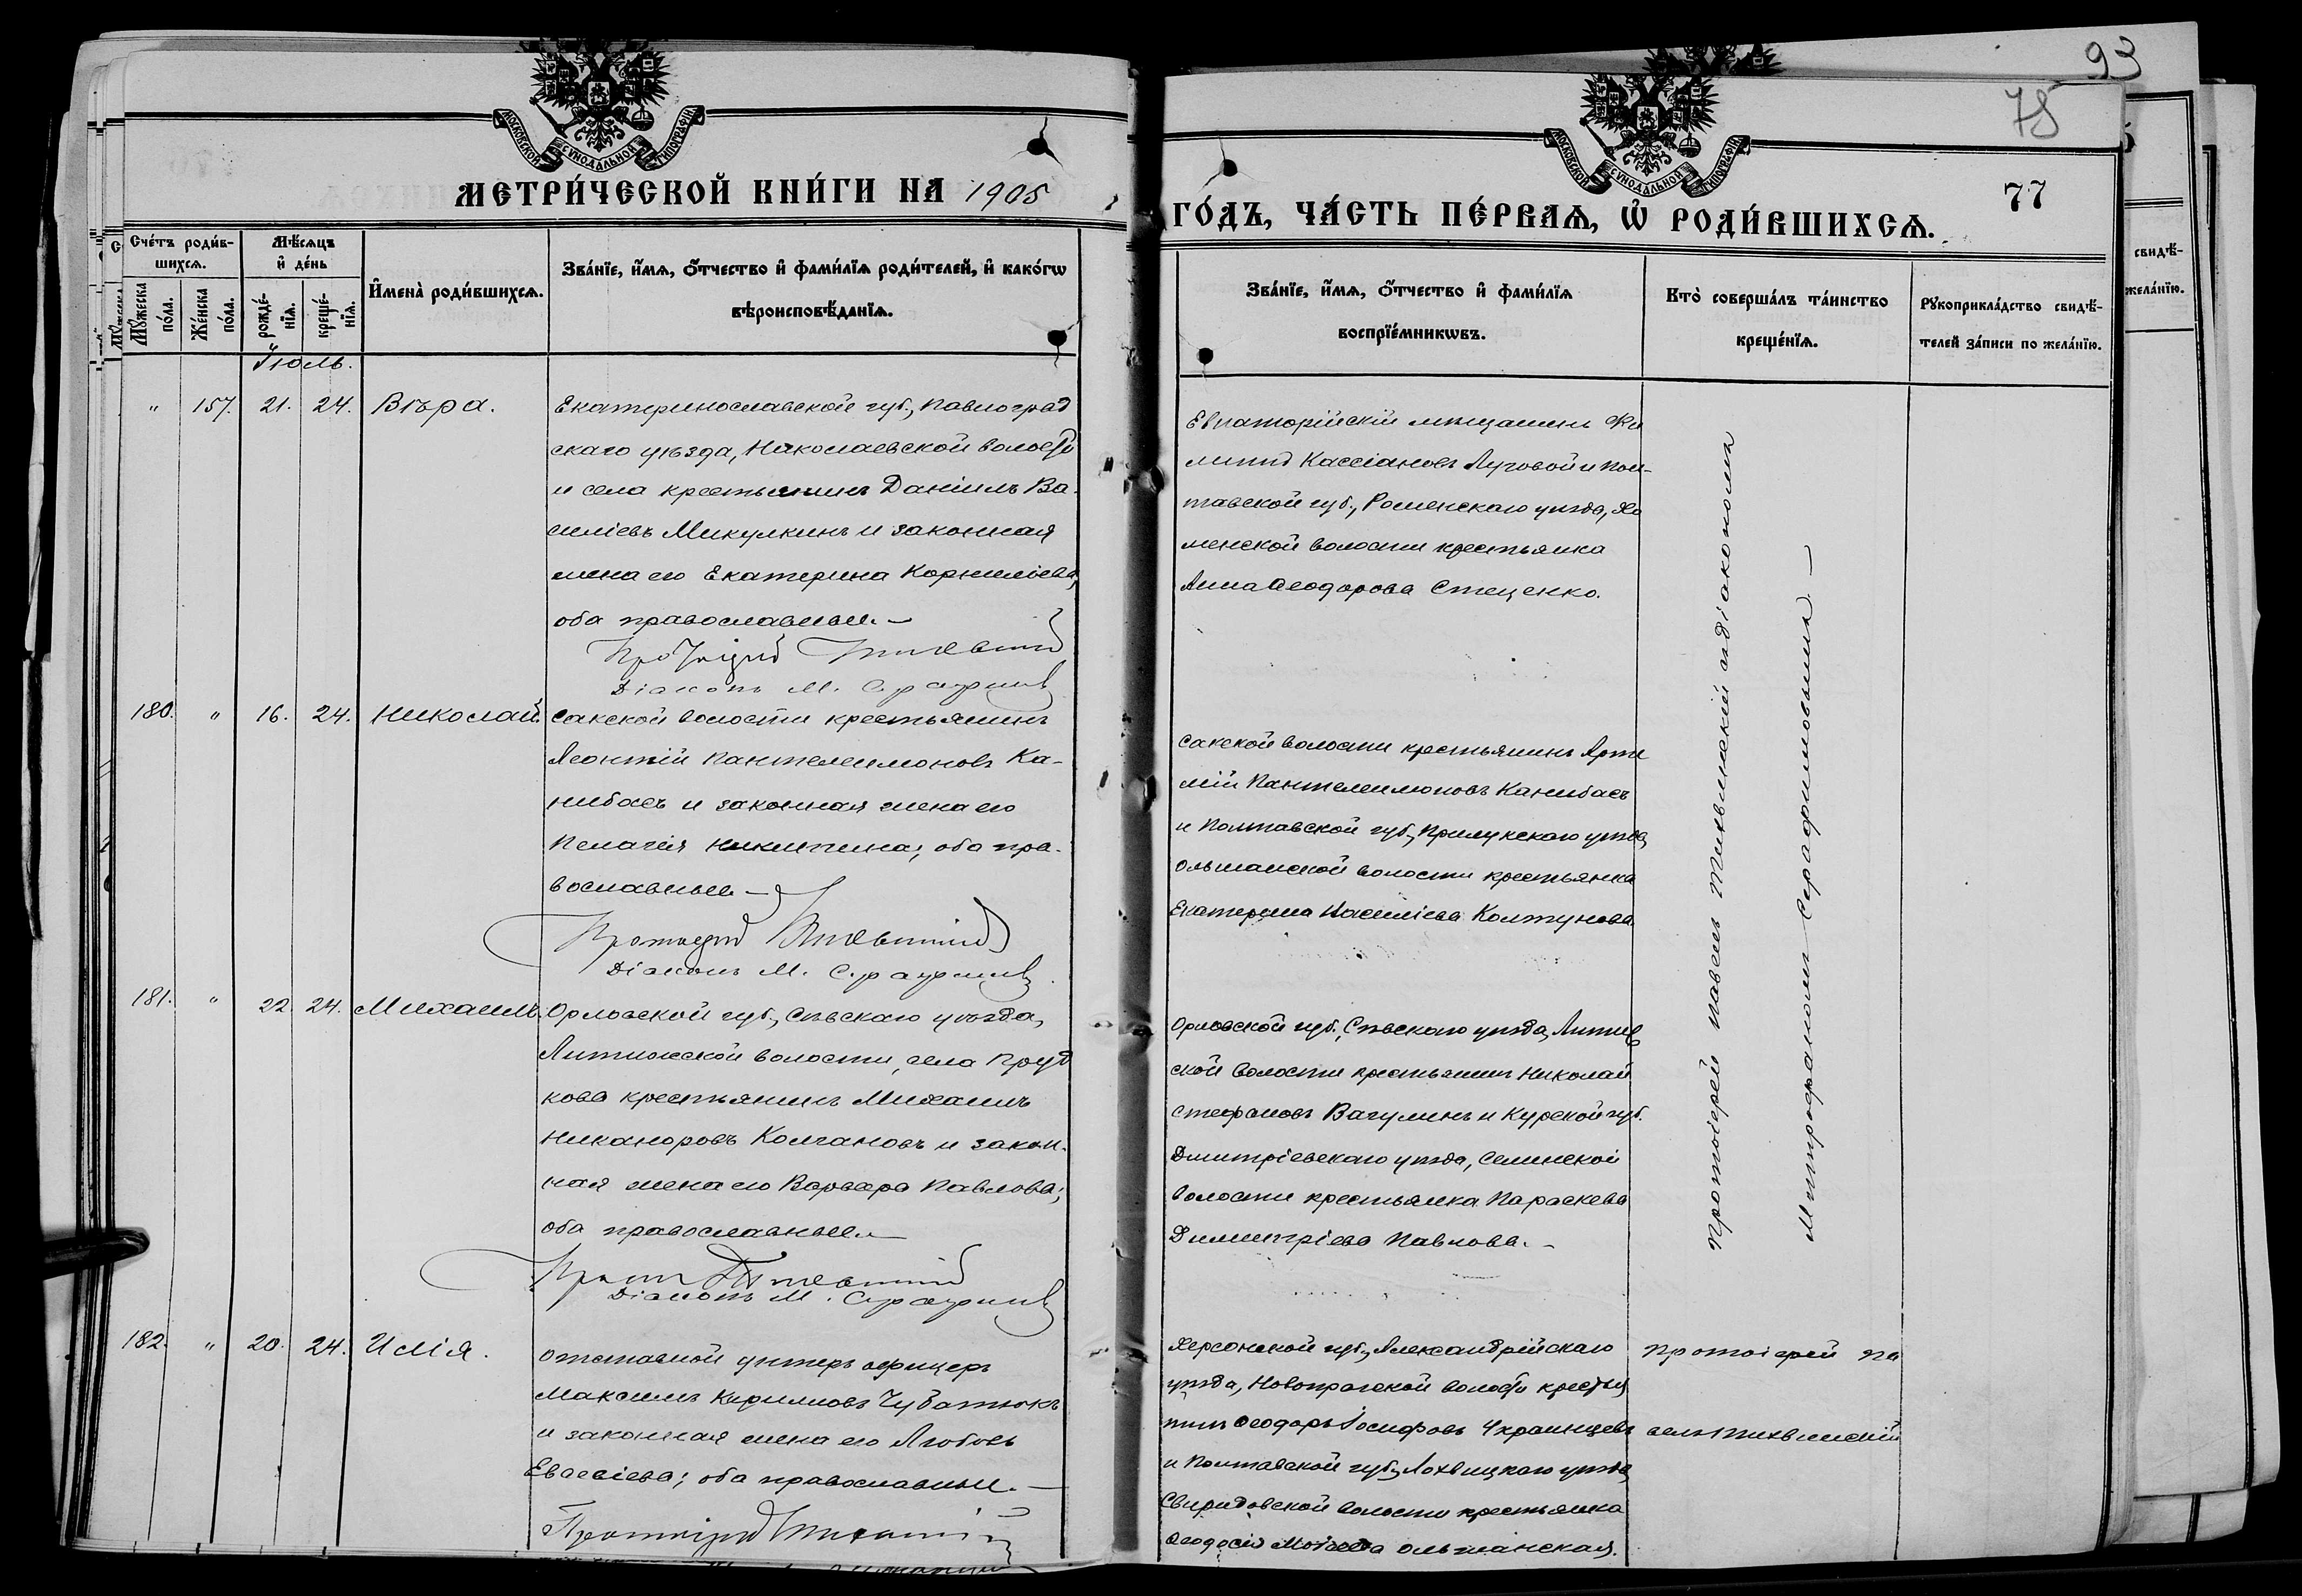 93
78
77
МОСКОВСКОЙ СѴНОДАЛЬНОЙ ТИПОГРАФІИ
МОСКОВСКОЙ СѴНОДАЛЬНОЙ ТИПОГРАФІИ
МЕТРИ́ЧЕСКОЙ КНИ́ГИ НА 1905
ГО́ДЪ, ЧА́СТЬ ПЕ́РВАѦ, Ѡ҆ РОДИ́ВШИХСѦ.
Сче́тъ роди́в-
шихсѧ.
Мꙋ́жеска
по́ла.
Же́нска
по́ла.
Мѣ́сѧцъ
и҆ де́нь
рожде́-
нїѧ.
креще́-
нїѧ.
И҆мена̀ роди́вшихсѧ.
Зва́нїе, и҆́мѧ, ѻ҆́тчество и҆ фами́лїѧ роди́телей, и҆ како́гѡ
вѣроисповѣ́данїѧ.
Зва́нїе, и҆́мѧ, ѻ҆́тчество и҆ фами́лїѧ
воспрїе́мникѡвъ.
Кто̀ соверша́лъ та́инство
креще́нїѧ.
Рꙋкоприкла́дство свидѣ́-
телей за́писи по жела́нїю.
свидѣ́-
жела́нїю.
Іюль.
" 157. 21. 24. Вѣра.
Екатеринославской губ., Павлоград
скаго уѣзда, Николаевской волости
и села крестьянинъ Даніилъ Ва-
силіевъ Микулкинъ и законная
жена его Екатерина Корниліева,
оба православные.—
Протоіерей Тихвинскій
Діаконъ М.
Евпаторійскій мѣщанинъ Фи
липпъ Кассіановъ Луговой и Пол-
тавской губ., Роменскаго уѣзда, Хо
менской волости крестьянка
Анна Ѳеодорова Стеценко.
180. " 16. 24. Николай.
Сакской волости крестьянинъ
Леонтій Пантелеимоновъ Ка-
нибасъ и законная жена его
Пелагія Никитина; оба пра-
вославные.—
Протоіерей Тихвинскій
Діаконъ М.
Сакской волости крестьянинъ Арте
мій Пантелеимоновъ Канибасъ
и Полтавской губ., Прилукскаго уѣзда,
Ольшанской волости крестьянка
Екатерина Василіева Колтунова
181. " 22. 24. Михаилъ.
Орловской губ., Сѣвскаго уѣзда,
Литижской волости, села Пруд
кова крестьянинъ Михаилъ
Никаноровъ Колгановъ и закон-
ная жена его Варвара Павлова;
оба православные.—
Прот. Тихвинскій
Діаконъ М.
Орловской губ., Сѣвскаго уѣзда, Литиж
ской волости крестьянинъ Николай
Стефановъ Вагулинъ и Курской губ.
Дмитріевскаго уѣзда, Селинской
волости крестьянка Параскева
Димитріева Павлова.—
Протоіерей Павелъ Тихвинскій съ діакономъ
Митрофаномъ Серафимовымъ.—
182. " 20. 24. Илія.
Отставной унтеръ офицеръ
Максимъ Кирилловъ Чубатюкъ
и законная жена его Любовь
Евсевіева; оба православные.—
Протоіерей Тихвинскій
Херсонской губ., Александрійскаго
уѣзда, Новопражской волости крестья
нинъ Ѳеодоръ Іосифовъ Украинцевъ
и Полтавской губ., Лохвицкаго уѣзда,
Свиридовской волости крестьянка
Ѳеодосія Моисеева Ольшанская.
Протоіерей Па
велъ Тихвинскій